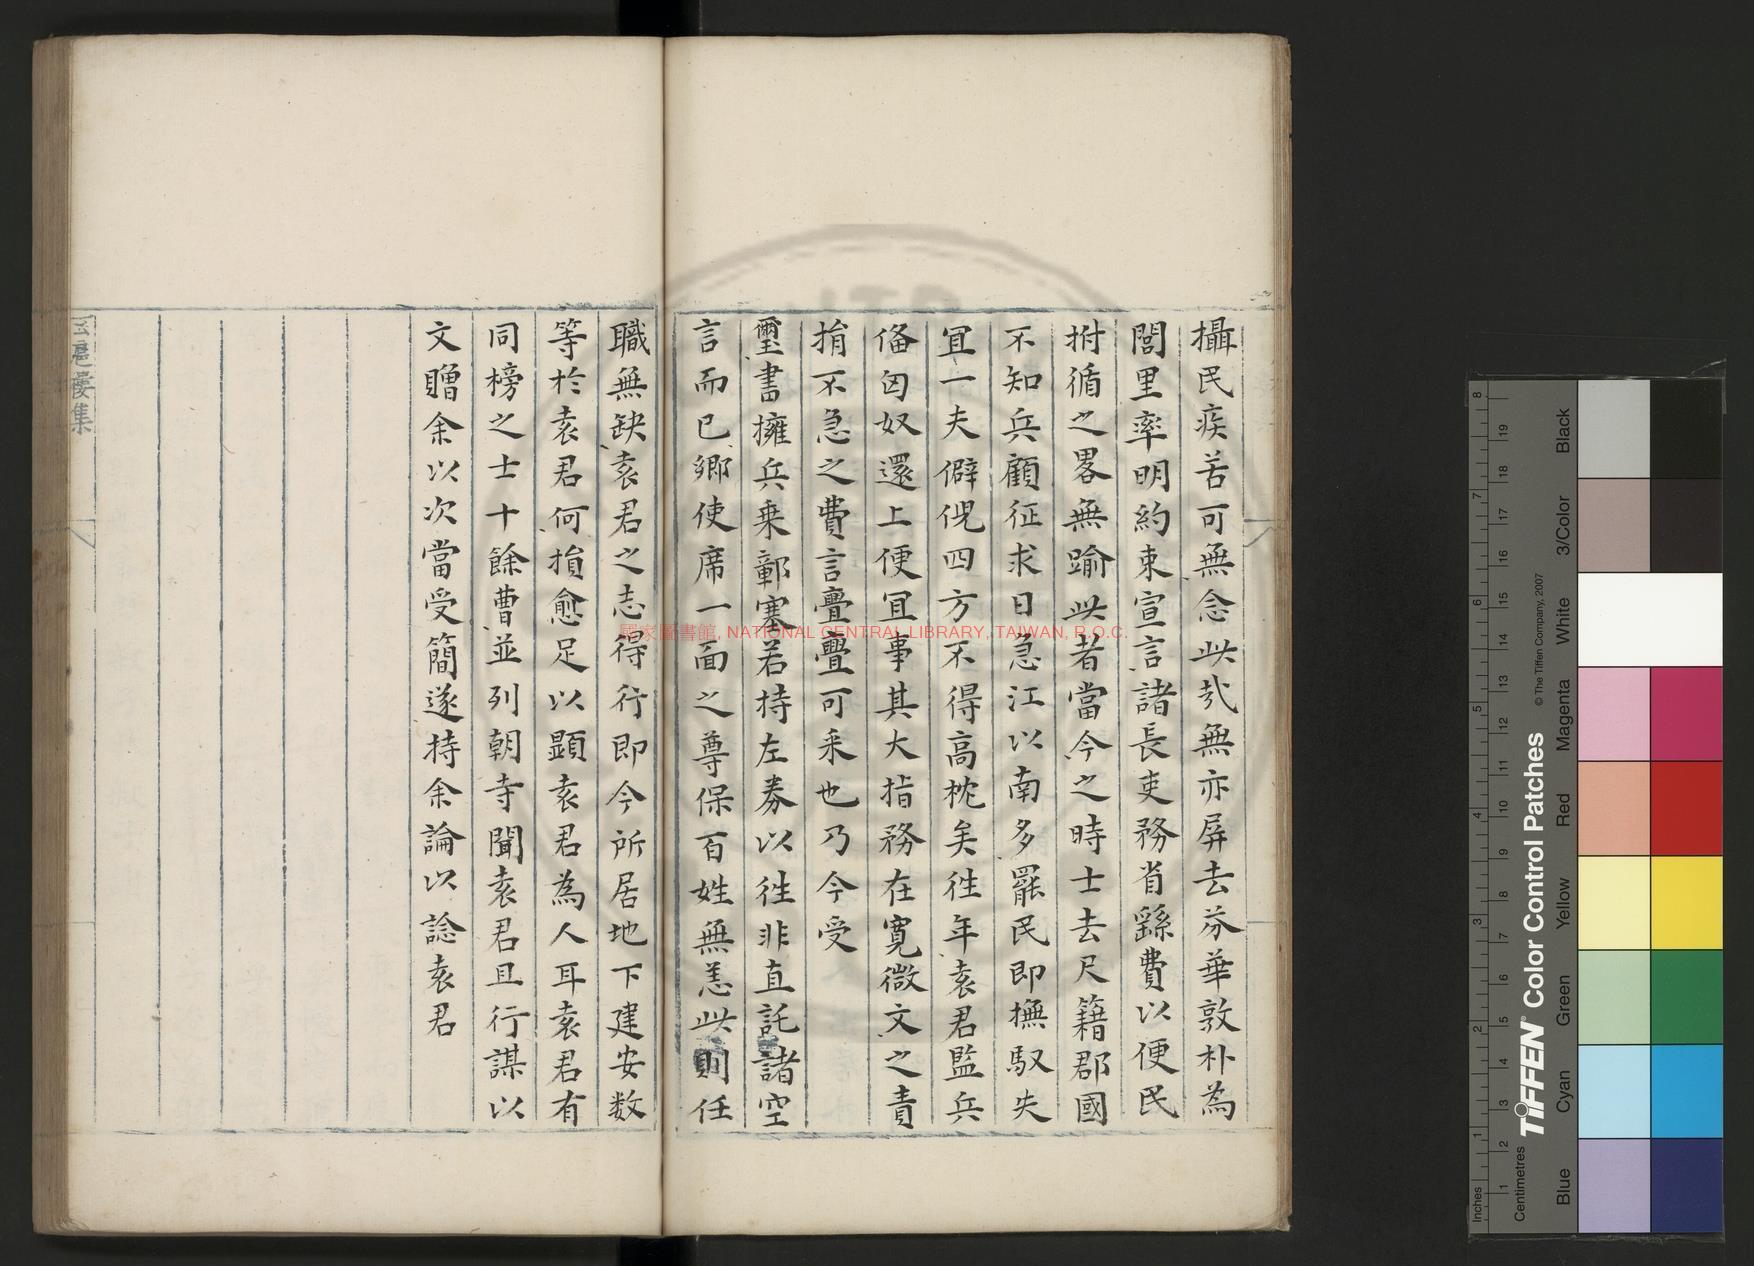 攝民疾苦可無念此㦲無亦屏去芬華敦朴為
閭里率明約束宣言諸長吏務省繇費以便民
拊循之畧無踰此者當今之時士去尺籍郡國
不知兵顧征求日急江以南多罷民即撫馭失
宜一夫僻倪四方不得高枕矣徃年袁君監兵
俻匈奴還上便宜事其大指務在寬微文之責
捐不急之費言亹亹可采也乃今受
璽書擁兵乗鄣塞若持左券以徃非直託諸空
言而已鄉使席一面之尊保百姓無恙此則任
職無缺袁君之志得行即今所居地下建安数
等於袁君何損愈足以顯袁君為人耳袁君有
同榜之士十餘曹並列朝寺聞袁君且行謀以
文贈余以次當受簡遂持余論以諗袁君
樓集
國家圖書館, NATIONAL CENTRAL LIBRARY, TAIWAN, R.O.C.
Inches
Centimetres
TIFFEN® Color Control Patches
© The Tiffen Company, 2007
Blue
Cyan
Green
Yellow
Red
Magenta
White
3/Color
Black